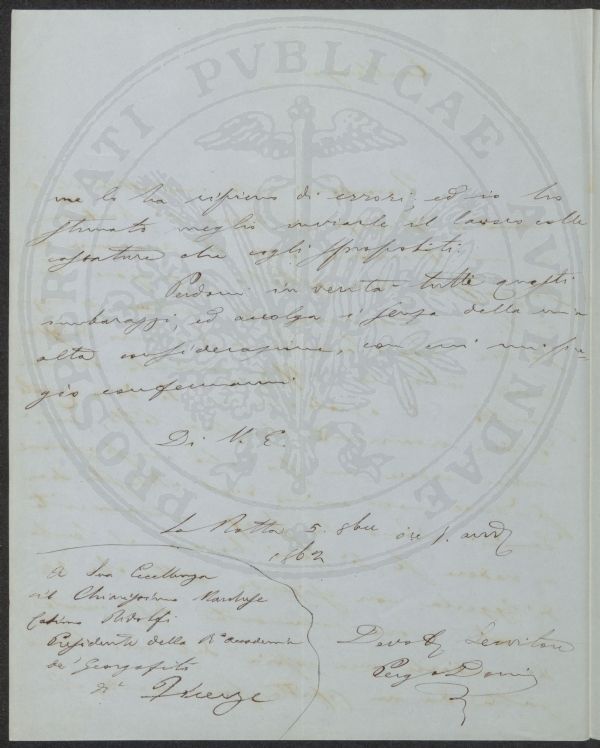 PROSPERITATI PVBLICAE AVGENDAE
me lo ha ripieno di errori, ed io ho
stimato meglio inviarle il lavoro colle
cassature che cogli spropositi.
Perdoni in verità tutti questi
imbarazzi, ed accolga i sensi della mia
alta considerazione, con cui mi pre-
gio confermarmi
Di V. E.
La Rotta 5. 8bre
1862
A Sua Eccellenza
il Chiarissimo Marchese
Cosimo Ridolfi
Presidente della Rª accademia
de' Georgofili
Firenze
Devot Servitore